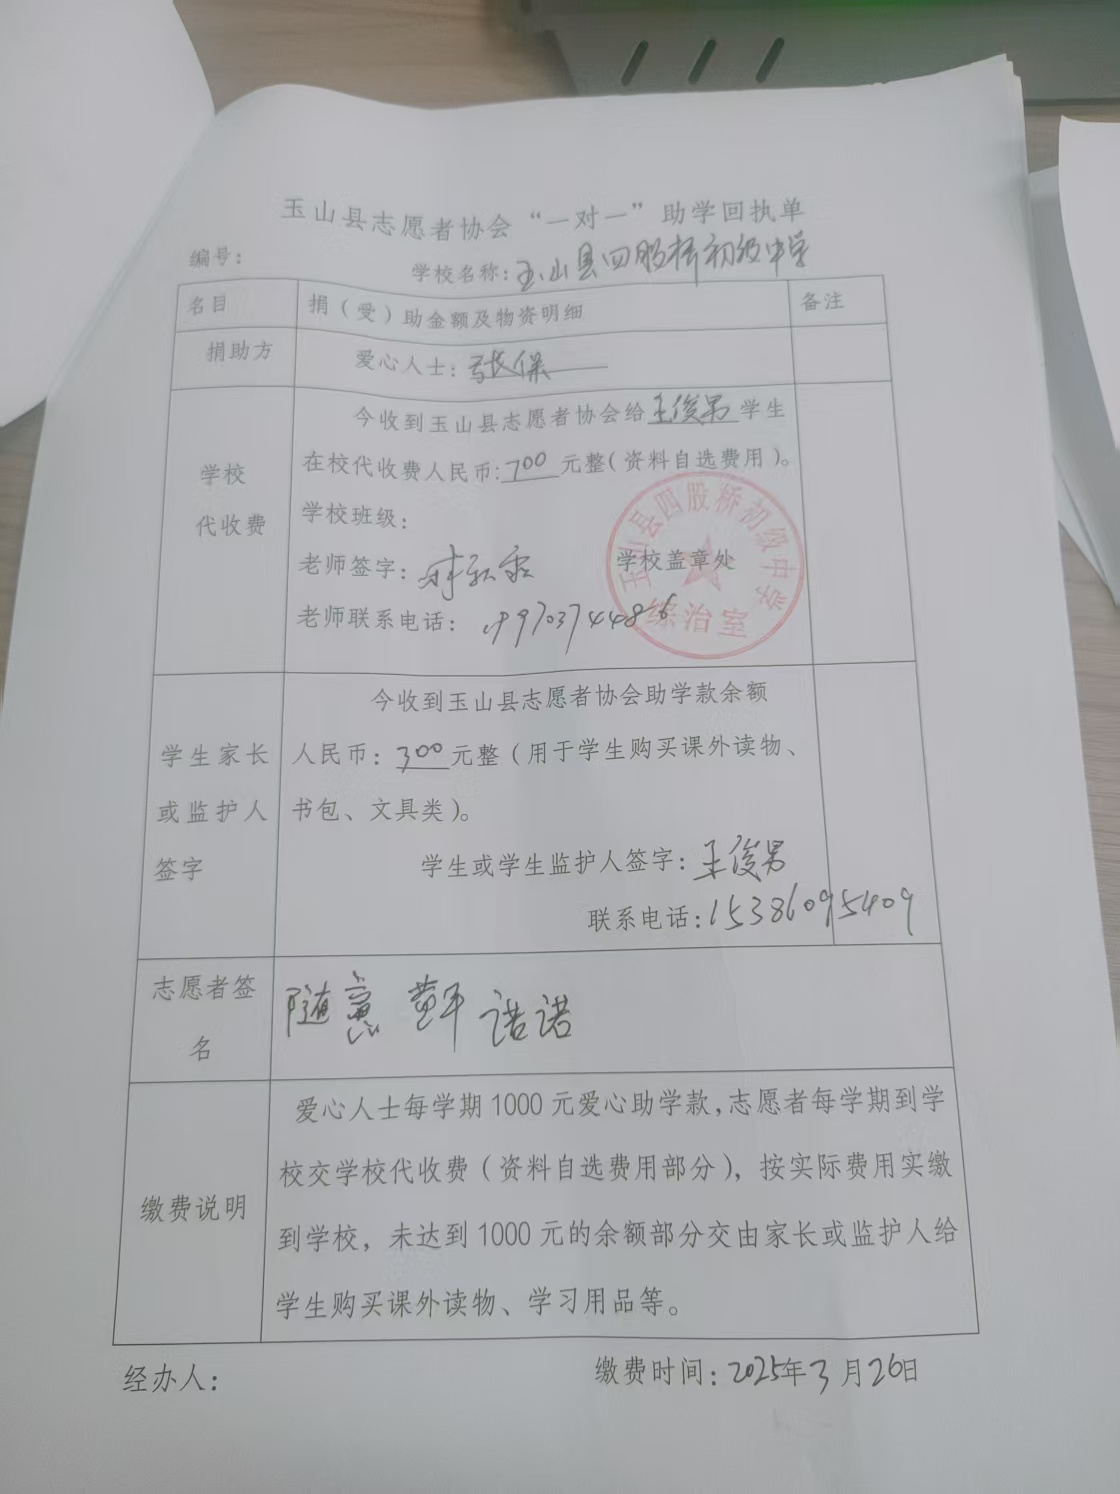 玉山县志愿者协会“一对一”助学回执单
编号： 学校名称：玉山县四股桥初级中学
名目 捐（受）助金额及物资明细 备注
捐助方 爱心人士：张保
学校
代收费
今收到玉山县志愿者协会给王俊男学生
在校代收费人民币：700元整（资料自选费用）。
学校班级：
老师签字：
学校盖章处
老师联系电话：
玉山县四股桥初级中学
综治室
学生家长
或监护人
签字
今收到玉山县志愿者协会助学款余额
人民币：300元整（用于学生购买课外读物、
书包、文具类）。
学生或学生监护人签字：王俊男
联系电话：15386095409
志愿者签
名
随意 黄平 诺诺
缴费说明
爱心人士每学期1000元爱心助学款，志愿者每学期到学
校交学校代收费（资料自选费用部分），按实际费用实缴
到学校，未达到1000元的余额部分交由家长或监护人给
学生购买课外读物、学习用品等。
经办人： 缴费时间：2025年3月26日